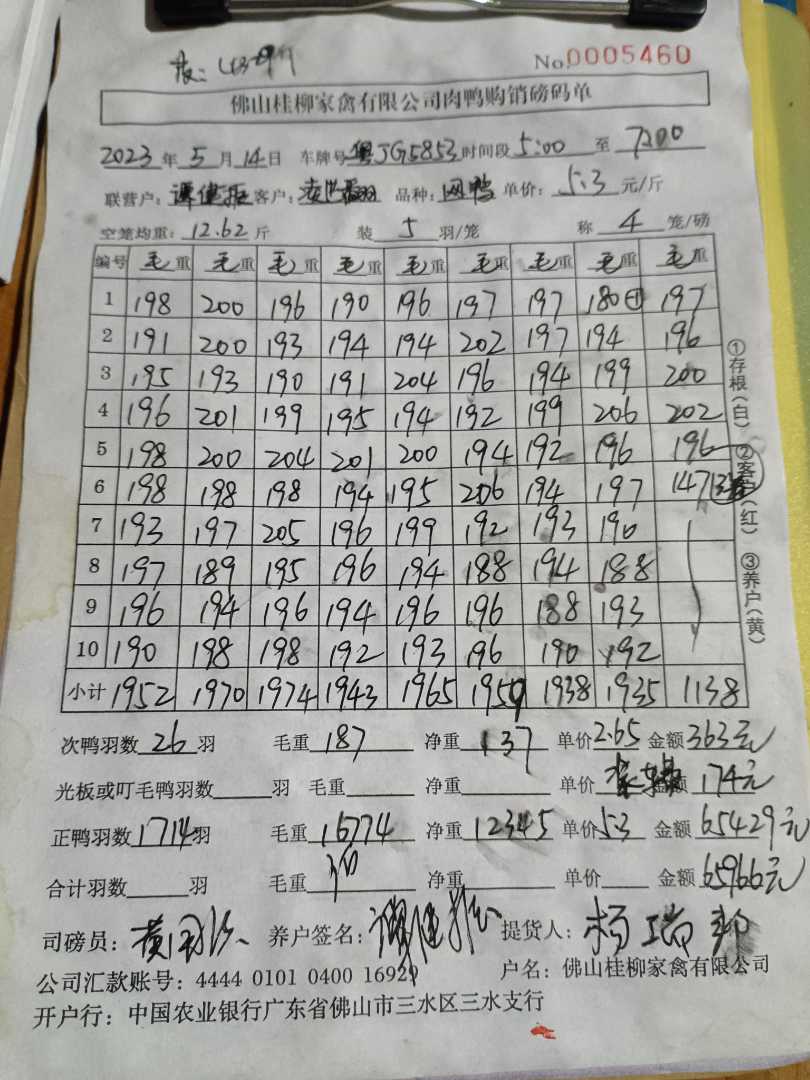 No.0005460
佛山桂柳家禽有限公司肉鸭购销磅码单
2023年5月14日 车牌号粤JG5853时间段5:00至7200
联营户: 客户: 品种: 网鸭 单价: 5.3元/斤
空笼均重: 12.62斤 装5羽/笼 称4笼/磅
编号 毛重 毛重 毛重 毛重 毛重 毛重 毛重 毛重 毛重
1 198 200 196 190 196 197 197 180 197
2 191 200 193 194 194 202 197 194 196
3 195 193 190 191 204 196 194 199 200
4 196 201 199 195 194 192 199 206 202
5 198 200 204 201 200 194 192 196 196
6 198 198 198 194 195 206 194 197 147
7 193 197 205 196 199 192 193 190
8 197 189 195 196 194 188 194 188
9 196 194 196 194 196 196 188 193
10 190 198 198 192 193 196 190 192
小计 1952 1970 1974 1943 1965 1959 1938 1935 1138
①存根(白) ②客户(红) ③养户(黄)
次鸭羽数26羽 毛重187 净重137 单价2.65 金额363元
光板或叮毛鸭羽数 羽 毛重 净重 单价 金额174元
正鸭羽数1714羽 毛重16774 净重12345 单价5.3 金额65429元
合计羽数 羽 毛重 净重 单价 金额65966元
司磅员: 养户签名: 提货人: 杨瑞郭
公司汇款账号: 4444 0101 0400 16929 户名: 佛山桂柳家禽有限公司
开户行: 中国农业银行广东省佛山市三水区三水支行